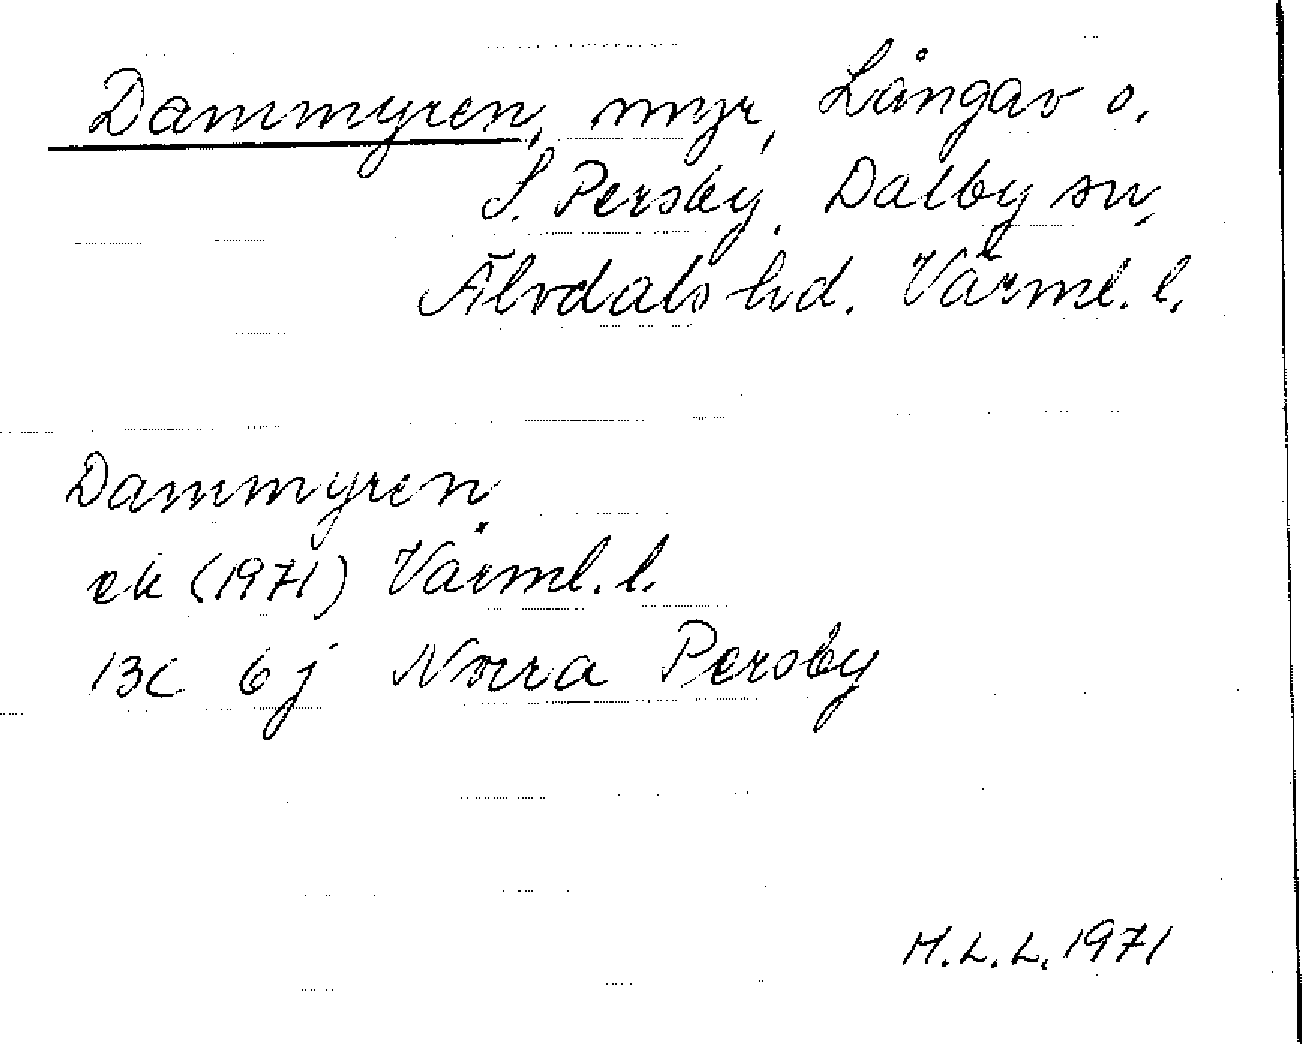 Dammyren, myr, Långav o.
S. Persby, Dalby sn,
Älvdals hd. Värml. l.
Dammyren
ek (1971) Värml. l.
13C 6j Norra Persby
M.L.L. 1971